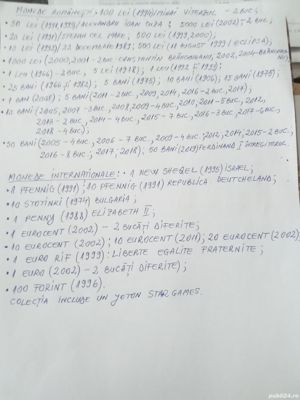 MONEDE ROMÂNEȘTI: • 100 LEI (1996)/MIHAI VITEAZUL - 2 BUC;
• 50 LEI (1991,1993)/ALEXANDRU IOAN CUZA; 5000 LEI (2002) - 2 BUC;
• 20 LEI (1991)/ȘTEFAN CEL MARE; 500 LEI (1999, 2000);
• 10 LEI (1992)/22 DECEMBRIE 1989; 500 LEI (11 AUGUST 1999)(ECLIPSA);
• 1000 LEI (2000, 2001 - 2 BUC CONSTANTIN BRÂNCOVEANU, 2002, 2004 - BRÂNCOVEANU);
• 1 LEU (1966) - 2 BUC; 5 LEI (1978); 1 LEU (1992 ȘI 1993);
• 25 BANI (1966 ȘI 1982); 5 BANI (1975); 10 BANI (1906); 15 BANI (1975);
• 1 BAN (2018); 5 BANI (2011 - 2 BUC, 2009, 2014, 2016 - 2 BUC, 2017);
• 10 BANI (2005, 2007 - 3 BUC, 2008, 2009 - 4 BUC, 2010, 2011 - 5 BUC, 2012,
2013 - 2 BUC, 2014 - 4 BUC, 2015 - 7 BUC, 2016 - 3 BUC, 2017 - 6 BUC,
2018 - 4 BUC);
• 50 BANI (2005 - 4 BUC, 2006 - 7 BUC, 2009 - 4 BUC, 2012, 2014, 2015 - 2 BUC,
2016 - 8 BUC; 2017; 2018); 50 BANI (2019)FERDINAND I ÎNTREGITORUL
MONEDE INTERNAȚIONALE: • 1 NEW SHEQEL (1995) ISRAEL;
• 1 PFENNIG (1991); 10 PFENNIG (1991) REPUBLICA DEUTCHELAND;
• 10 STOTINKI (1974) BULGARIA;
• 1 PENNY (1988) ELIZABETH II;
• 1 EUROCENT (2002) - 2 BUCĂȚI DIFERITE;
• 10 EUROCENT (2002); 10 EUROCENT (2011); 20 EUROCENT (2002);
• 1 EURO RIF (1999): LIBERTE EGALITE FRATERNITE;
• 1 EURO (2002) - 2 BUCĂȚI DIFERITE);
• 100 FORINT (1996).
COLECȚIA INCLUDE UN JETON STAR GAMES.
publi24.ro